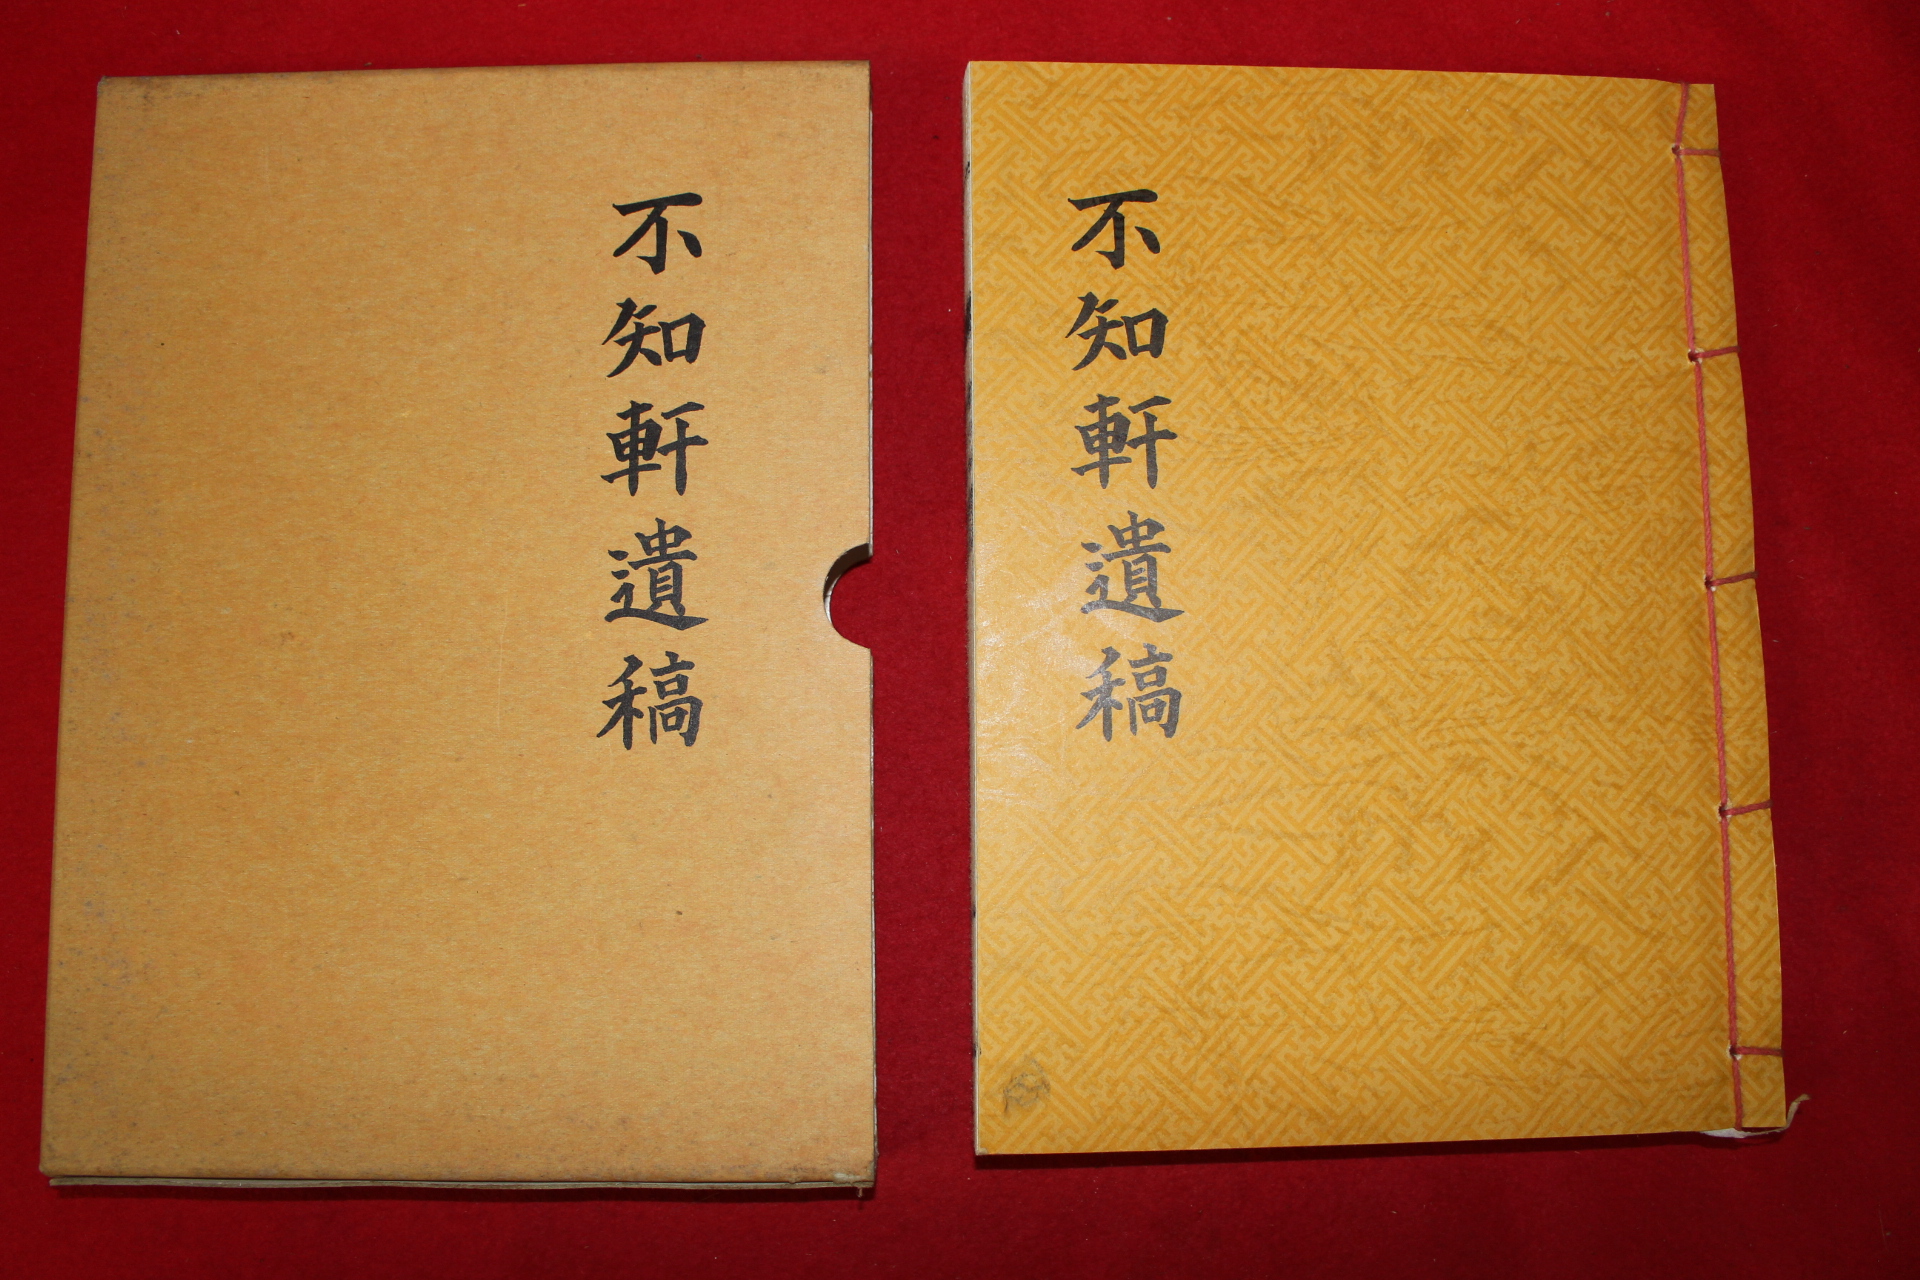 不知軒遺稿
不知軒遺稿